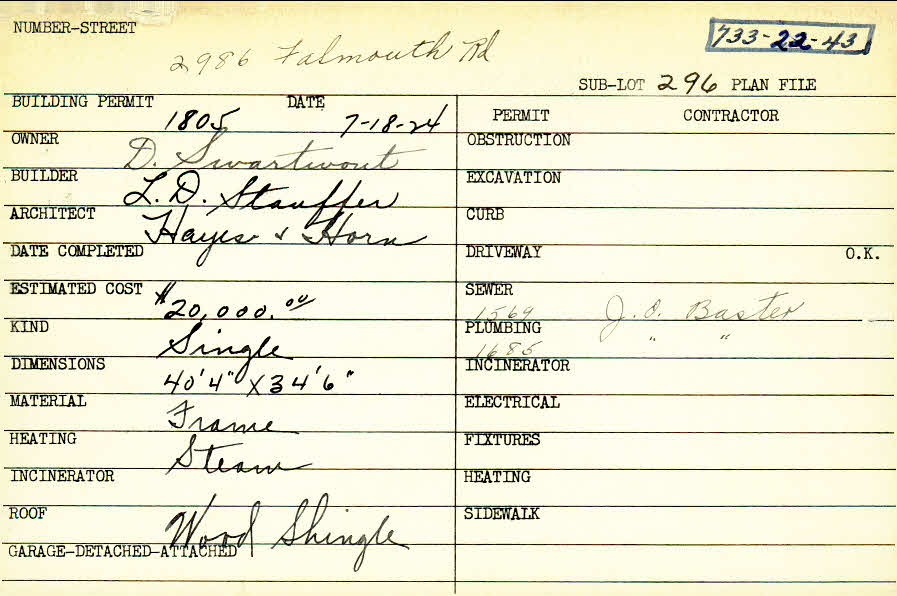 NUMBER-STREET
2986 Falmouth Rd
733-22-43
SUB-LOT 296 PLAN FILE
BUILDING PERMIT 1805 DATE 7-18-24
OWNER D. Swartwout
BUILDER L.D. Stauffer
ARCHITECT Hayes & Horn
DATE COMPLETED
ESTIMATED COST $20,000.00
KIND Single
DIMENSIONS 40'4" X 34'6"
MATERIAL Frame
HEATING Steam
INCINERATOR
ROOF Wood Shingle
GARAGE-DETACHED-ATTACHED
PERMIT CONTRACTOR
OBSTRUCTION
EXCAVATION
CURB
DRIVEWAY O.K.
SEWER 1569 J.O. Baster
PLUMBING 1685 " "
INCINERATOR
ELECTRICAL
FIXTURES
HEATING
SIDEWALK